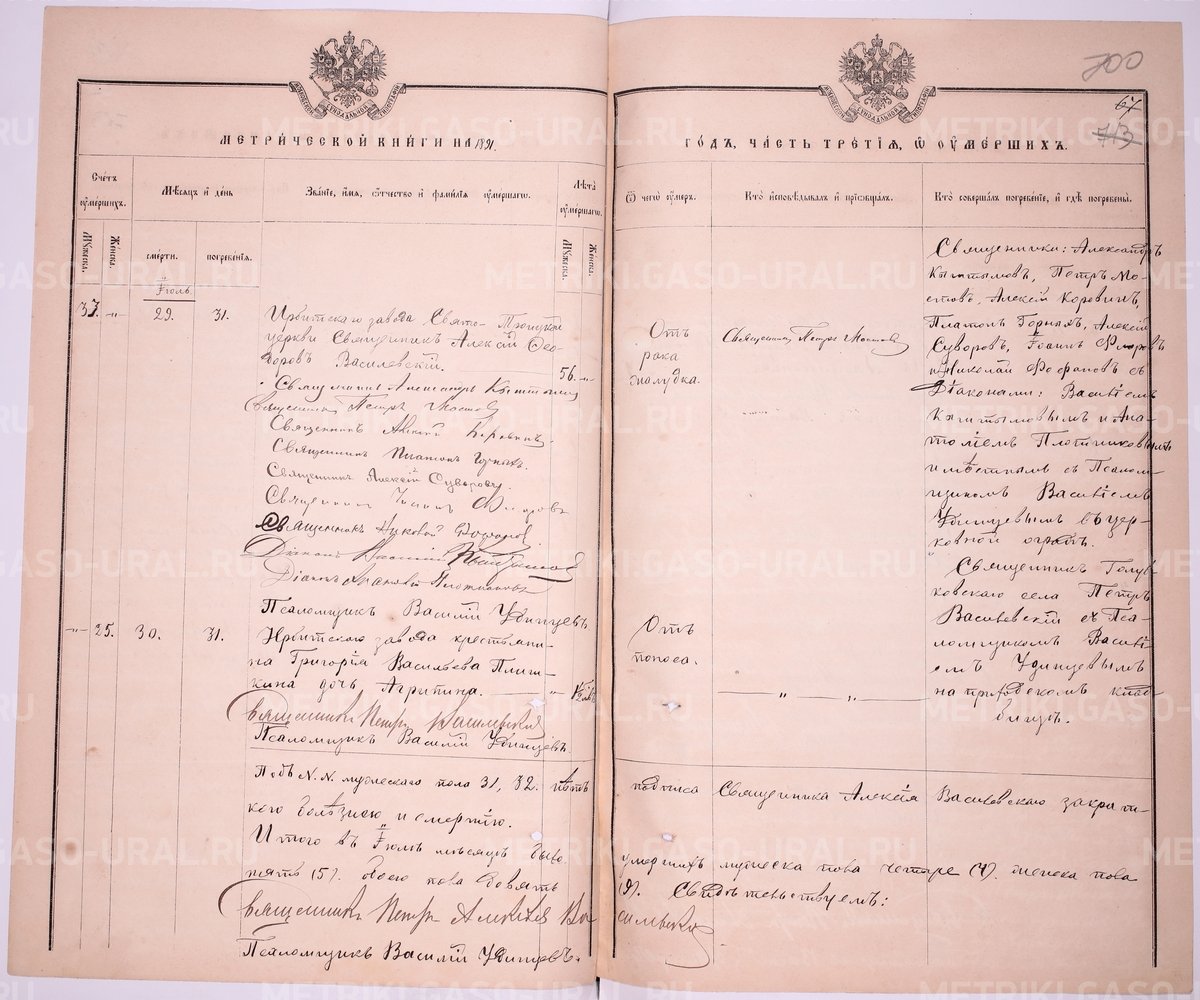 700
67
713
МЕТРИ́ЧЕСКОЙ КНИ́ГИ НА 1891
ГО́ДЪ, ЧА́СТЬ ТРЕ́ТІѦ, Ѿ ОУ҆МЕ́РШИХЪ.
Сче́тъ оу҆ме́ршихъ.
Мѣ́сѧцъ и де́нь
Зва́ніе, и҆́мѧ, ѻ҆́тчество и фами́лїѧ оу҆ме́ршагѡ.
Лѣ́та оу҆ме́ршагѡ.
Ѿ чегѡ̀ оу҆́меръ.
Кто̀ и҆сповѣ́дывалъ и прїѡбща́лъ.
Кто̀ соверша́лъ погребе́нїе, и гдѣ̀ погребены̀.
Мꙋ́жеска.
Же́нска.
сме́рти.
погребе́нїѧ.
Мꙋ́жеска.
Же́нска.
Іюль.
37. -"- 29. 31.
Ирбитскаго завода Свято-Троицкой
церкви Священникъ Алексій Ѳео-
доровъ Василевскій.
56. -"-
Священникъ Александръ Кыштымовъ
Священникъ Петръ Мостовъ
Священникъ Алексій Коровинъ.
Священникъ Платонъ Горныхъ.
Священникъ Алексій Суворовъ.
Священникъ Іоаннъ Флоровъ
Священникъ Николай Фофановъ
Діаконъ Василій Кыштымовъ
Діаконъ Анатолій Плотниковъ
Псаломщикъ Василій Удинцевъ
Отъ
рака
желудка.
Священникъ Петръ Мостовъ
Священники: Александръ
Кыштымовъ, Петръ Мо-
стовъ, Алексій Коровинъ,
Платонъ Горныхъ, Алексій
Суворовъ, Іоаннъ Флоровъ
и Николай Фофановъ съ
Діаконами: Василіемъ
Кыштымовымъ и Ана-
толіемъ Плотниковымъ
и мѣстнымъ съ Псалом-
щикомъ Василіемъ
Удинцевымъ въ цер-
ковной оградѣ.
-"- 25. 30. 31.
Ирбитскаго завода крестьяни-
на Григорія Васильева Плиш-
кина дочь Агрипина.
"
Священникъ Петръ Василевскій
Псаломщикъ Василій Удинцевъ.
Отъ
поноса.
" "
Священникъ
села Петръ
Василевскій съ Пса-
ломщикомъ Васили-
емъ Удинцевымъ
на приходскомъ клад-
бищѣ.
Подъ N.N. мужескаго пола 31, 32. нѣтъ подписа Священника Алексія Василевскаго за крат-
кою болѣзнію и смертію.
Итого въ Іюлѣ мѣсяцѣ было умершихъ мужеска пола четыре (4). женска пола
пять (5). обоего пола девять (9). Свидѣтельствуемъ:
Священникъ Петръ Алексіевъ Василевскій
Псаломщикъ Василій Удинцевъ.
METRIKI.GASO-URAL.RU